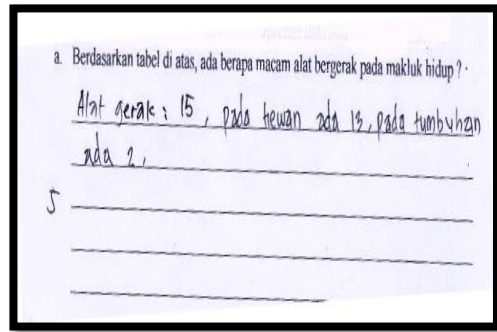 a. Berdasarkan tabel di atas, ada berapa macam alat bergerak pada makluk hidup ?
Alat gerak : 15, pada hewan ada 13, pada tumbuhan
ada 2,
5